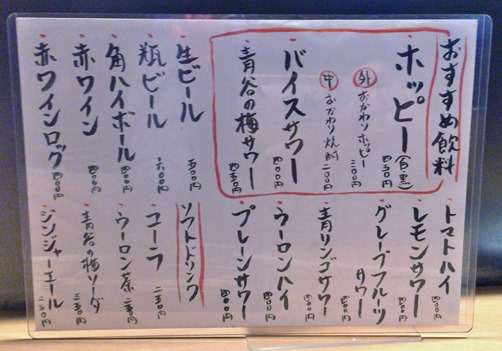 おすすめ飲料
ホッピー（白・黒） 四五〇円
外 おかわりホッピー 二〇〇円
中 おかわり焼酎 二〇〇円
バイスサワー 四〇〇円
青谷の梅サワー 四五〇円
生ビール 五〇〇円
瓶ビール 六〇〇円
角ハイボール 四〇〇円
赤ワイン 四〇〇円
赤ワインロック 四〇〇円
トマトハイ 四〇〇円
レモンサワー 四〇〇円
グレープフルーツサワー 四〇〇円
青リンゴサワー 四〇〇円
ウーロンハイ 四〇〇円
プレーンサワー 四〇〇円
ソフトドリンク
コーラ 二五〇円
ウーロン茶 二五〇円
青谷の梅ソーダ 三五〇円
ジンジャーエール 二五〇円